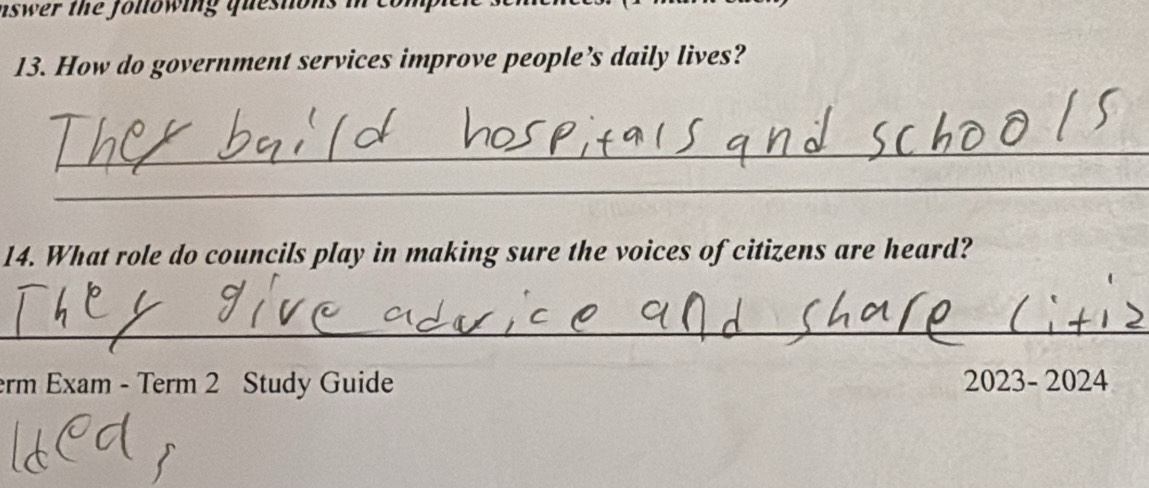 nswer the following questions in complete sentences. (1 mark each)
13. How do government services improve people's daily lives?
They baild hospitals and schools
14. What role do councils play in making sure the voices of citizens are heard?
They give advice and share citiz
erm Exam - Term 2 Study Guide 2023- 2024